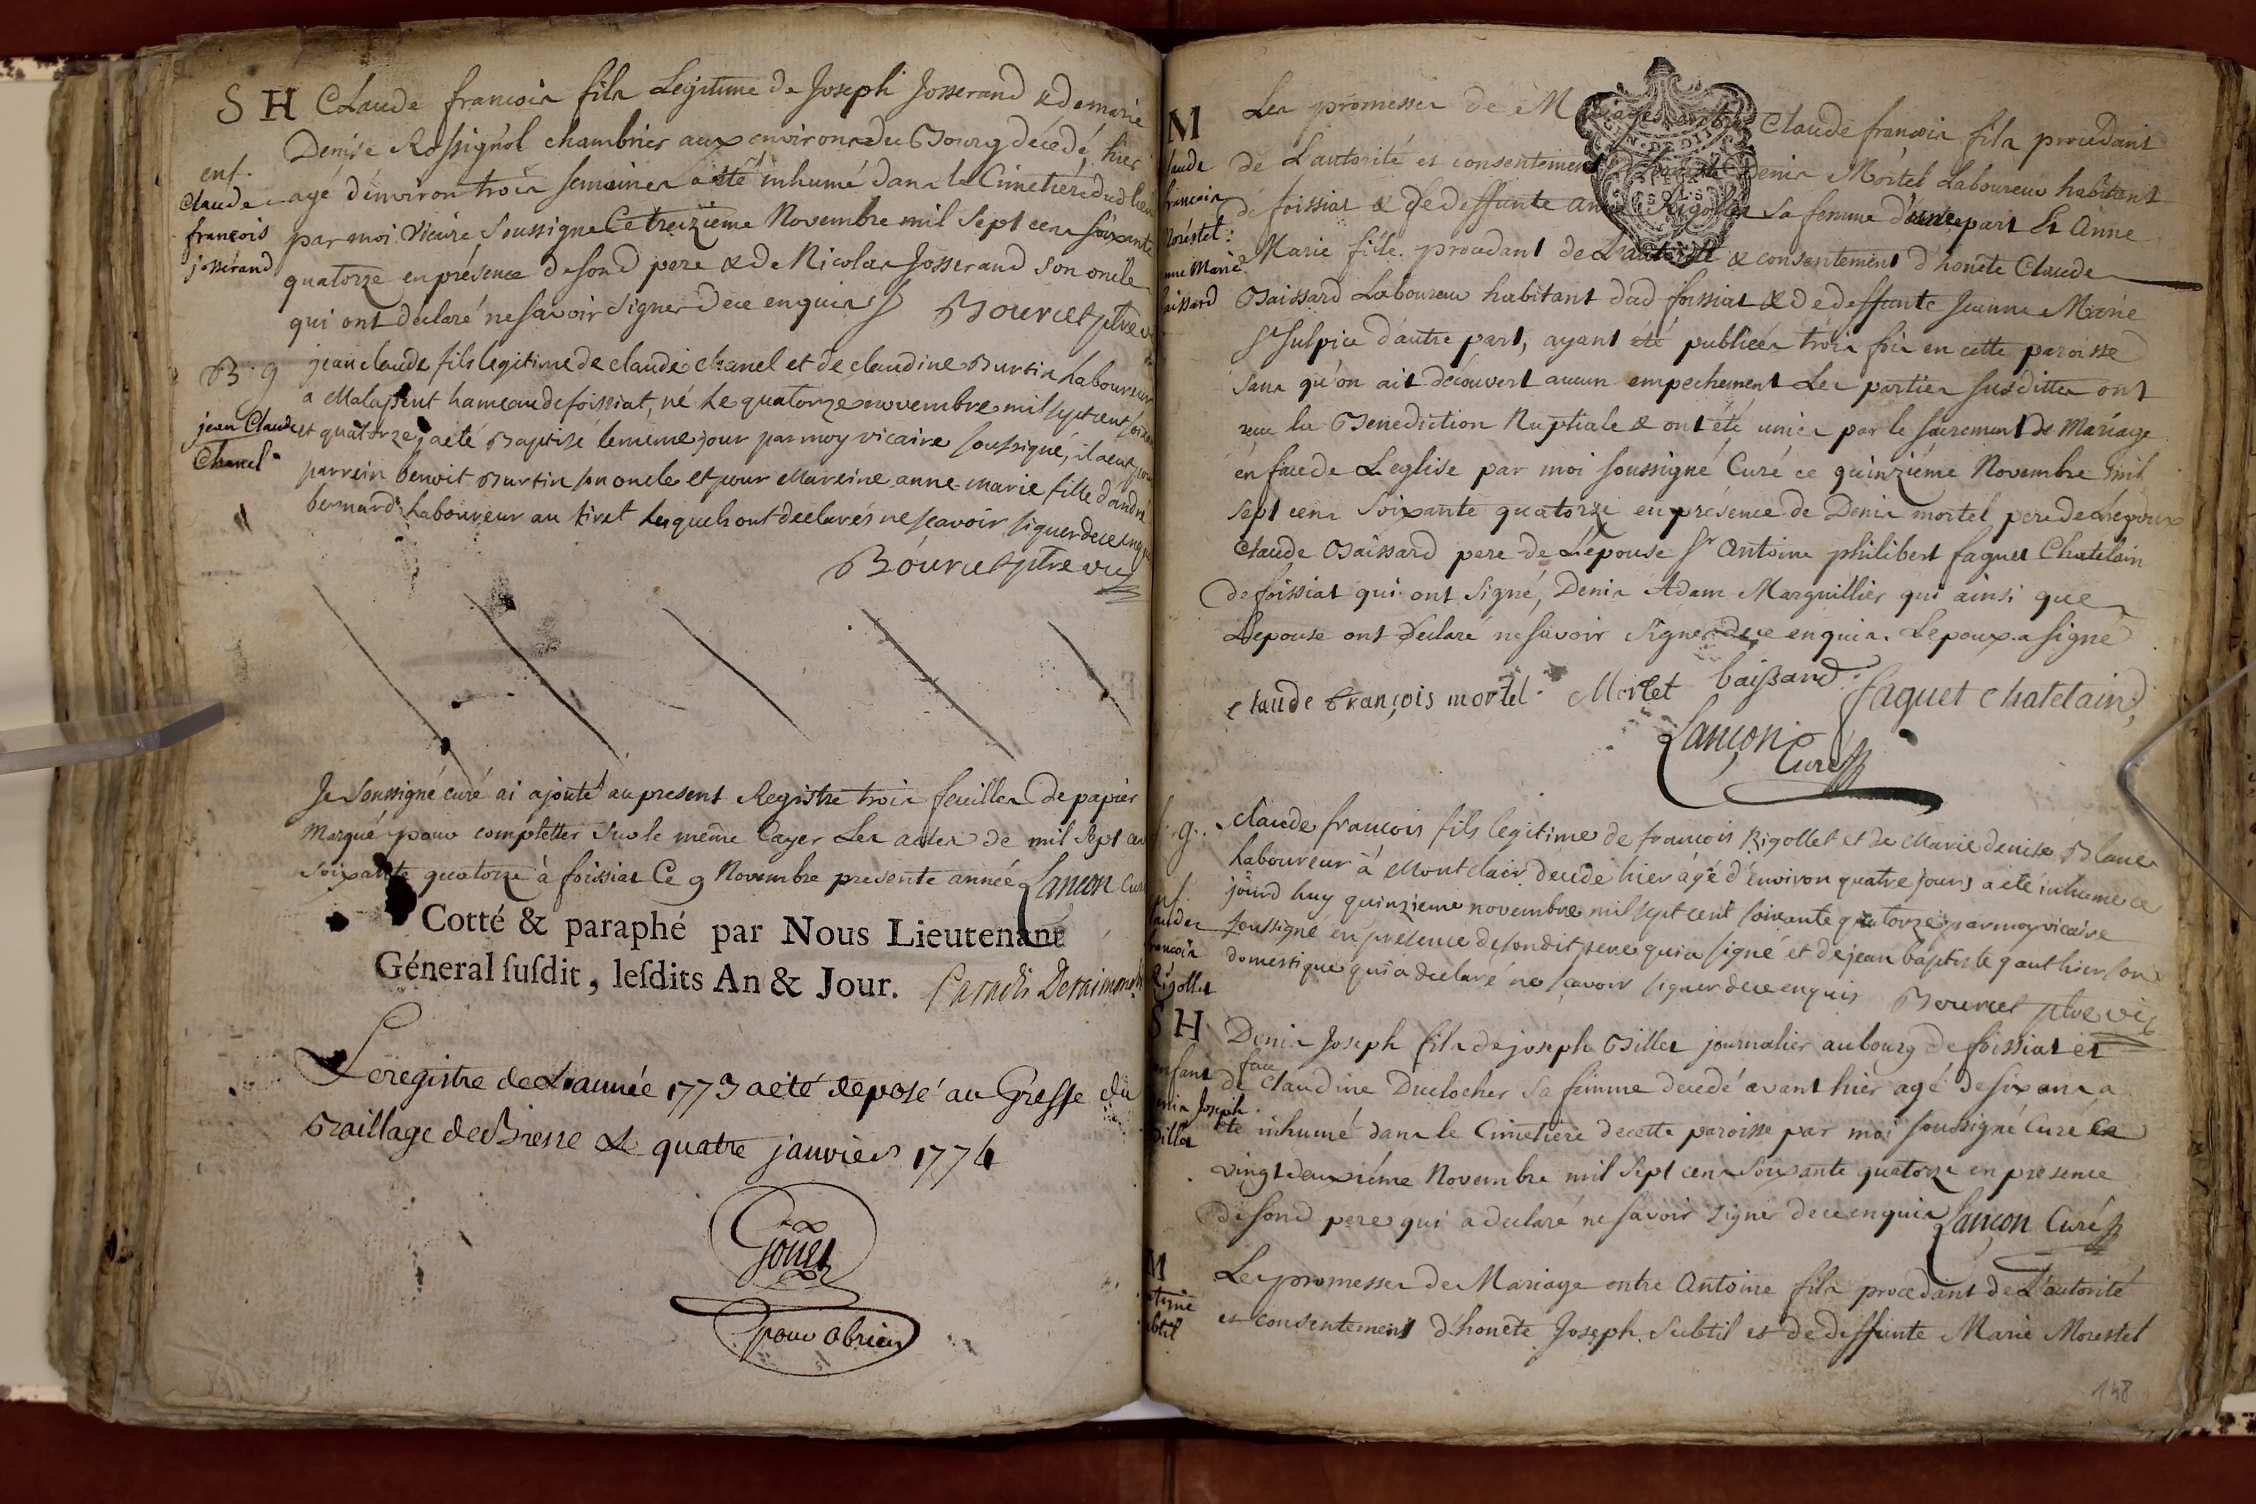 S H Claude francois fils Legitime de Joseph Josserand & de marie
Denise Rossignol chambrier aux environs du Bourg décédé hier
enf.
Claude
françois
josserand
agé d'environ trois semaines a été inhumé dans le Cimetière dud lieu
par moi Vicaire Soussigne Ce treizieme Novembre mil Sept cens soixante
quatorze en présence de sond pere & de Nicolas Josserand son oncle
qui ont déclaré ne savoir signer de ce enquis Bourcet ptre
B. g
jean Claude
Chanel
jean claude fils legitime de claude chanel et de claudine Burtin Laboureur
a Malapent hameau de foissiat, né Le quatorze novembre mil sept cent soixante
et quatorze, a eté Baptisé le meme jour par moy vicaire soussigné, il a eut pour
parrein benoit Burtin son oncle et pour Mareine anne-marie fille d'andré
bernard Laboureur au tiret Lesquels ont declarés ne sçavoir signer de ce enquis
Bourcet ptre vic
Je soussigné curé ai ajouté au present Registre trois feuilles de papier
Marqué pour completter sur le même Cayer Les actes de mil sept cens
soixante quatorze à foissiat Ce 9 Novembre presente année Lançon Curé
Cotté & paraphé par Nous Lieutenant
Géneral susdit, lesdits An & Jour.
Le registre de L'année 1773 a été déposé au Greffe du
Baillage de Bresse Le quatre janvier 1774
Gouet
pour obrier
M
laude
francois
Moréstel:
nne Marie
aissard
Les promesses de Mariage entre Claude francois fils procedant
de L'autorité et consentement Denis Mortel Laboureur habitant
de foissiat & de deffunte anne Rigollet sa femme d'une part Et Anne
Marie fille procedant de L'autorité & consentement d'honête Claude
Baissard Laboureur habitant dud foissiat & de deffunte Jeanne Marie
St Sulpice d'autre part, ayant été publiées trois fois en cette paroisse
sans qu'on ait découvert aucun empechement Les parties susdittes ont
recu la Benediction Nuptiale & ont été unies par le sacrement de Mariage
en face de L'eglise par moi soussigné Curé ce quinzième Novembre mil
sept cens soixante quatorze en présence de Denis mortel pere de L'époux
Claude Baissard pere de L'épouse Sr Antoine philibert faguet Chatelain
de foissiat qui ont signé, Denis Adam Marguillier qui ainsi que
L'epouse ont déclaré ne savoir signer de ce enquis. L'epoux a signé
claude François mortel Mortet baissard faguet chatelain
Lançon
Curé
g.
lauder
francois
Rigollet
claude francois fils legitime de francois Rigollet et de Marie denise Blanc
Laboureur à Montclair décédé hier ágé d'environ quatre jours a eté inhumé ce
jourd huy quinzieme novembre mil sept cent soixante quatorze par moy vicaire
soussigné en presence de sondit pere qui a signé et de jean baptiste gauthier son
domestique qui a declaré ne sçavoir signer de ce enquis Bourcet ptre vic
S H
enfant
Denis Joseph
Billet
Denis Joseph fils de joseph Billet journalier au bourg de foissiat et
feu
de Claudine Duclocher sa femme décédé avant hier agé de six ans a
été inhumé dans le Cimetière de cette paroisse par moi soussigné Curé Ce
vingt deuxième Novembre mil sept cens soixante quatorze en presence
de sond pere qui a declaré ne savoir signer de ce enquis Lançon Curé
M
ntoine
ubtil
Les promesses de Mariage entre Antoine fils procedant de L'autorité
et consentement d'honête Joseph Subtil et de deffunte Marie Morestel
148